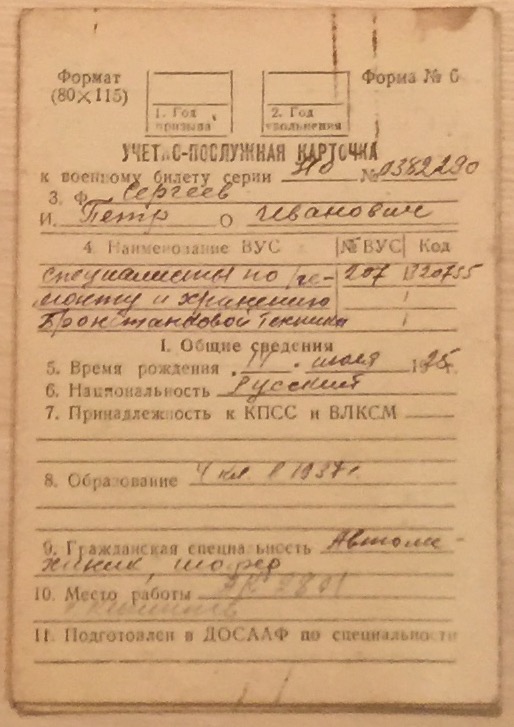 Формат
(80×115)
Форма № 6
1. Год
призыва
2. Год
увольнения
УЧЕТНО-ПОСЛУЖНАЯ КАРТОЧКА
к военному билету серии НО № 0382290
3. Ф. Сергеев
И. Петр О Иванович
4. Наименование ВУС № ВУС Код
специалисты по ре- 207
монту и хранению
бронетанковой техники
I. Общие сведения
5. Время рождения 11 июля 1925 г.
6. Национальность Русский
7. Принадлежность к КПСС и ВЛКСМ
8. Образование 4 кл. в 1937 г.
9. Гражданская специальность Автоме-
ханик, шофер
10. Место работы
11. Подготовлен в ДОСААФ по специальности